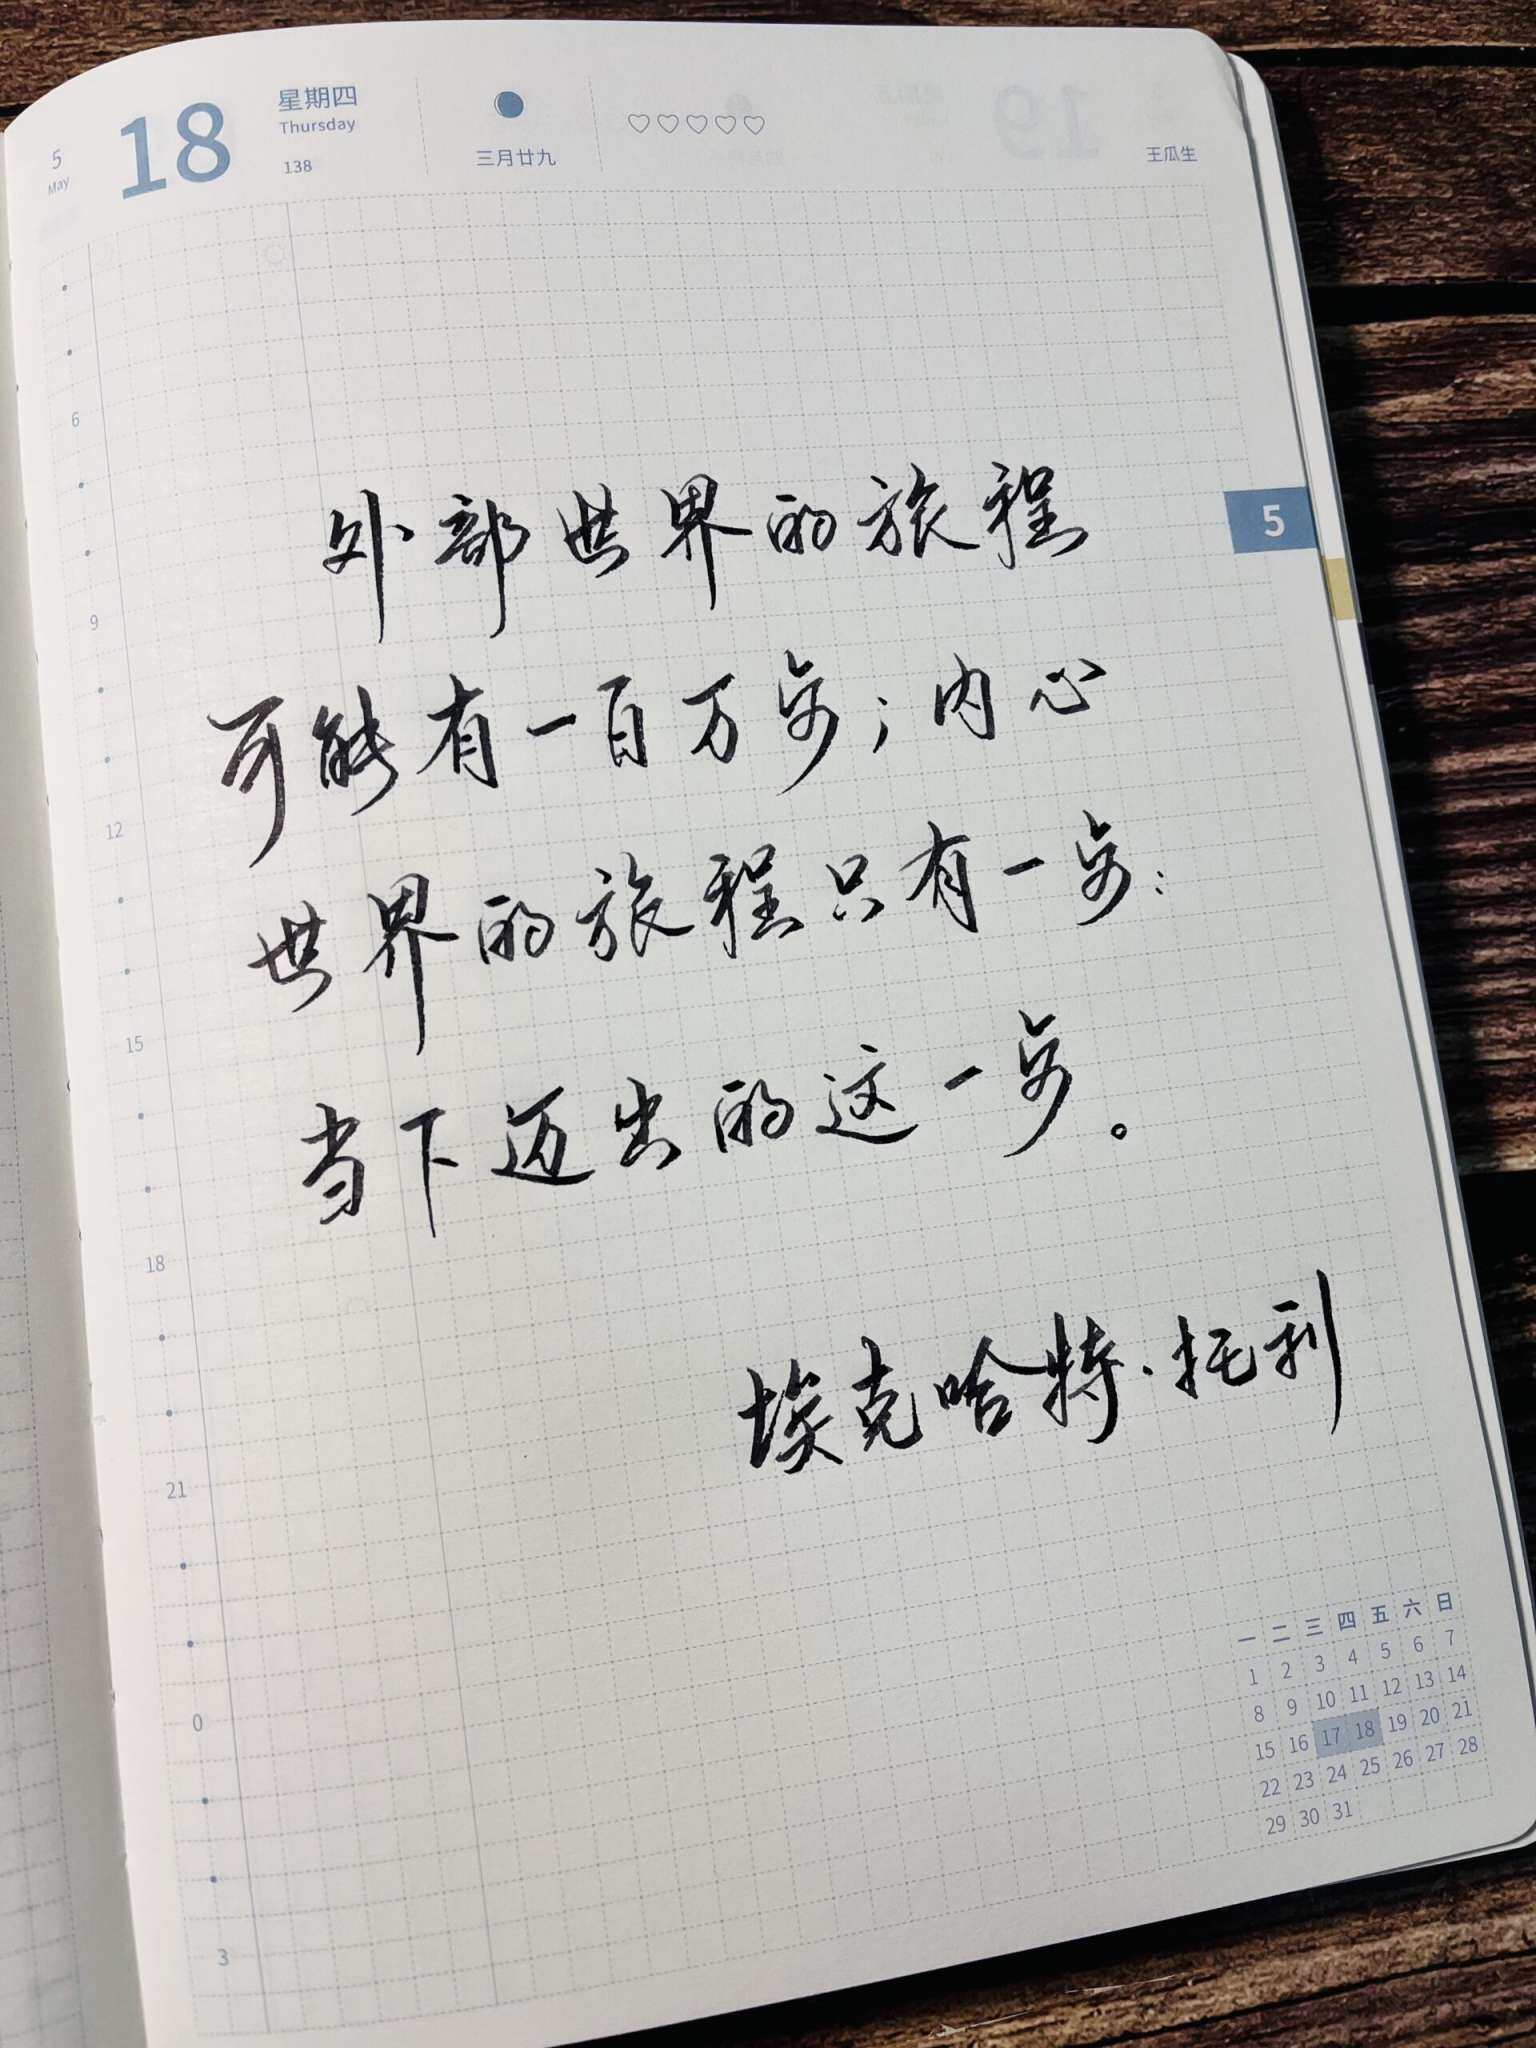 5
May
18
星期四
Thursday
138
三月廿九
♡♡♡♡♡
王瓜生
5
6
9
12
15
18
21
0
3
外部世界的旅程
可能有一百万步；内心
世界的旅程只有一步：
当下迈出的这一步。
埃克哈特·托利
一 二 三 四 五 六 日
1 2 3 4 5 6 7
8 9 10 11 12 13 14
15 16 17 18 19 20 21
22 23 24 25 26 27 28
29 30 31